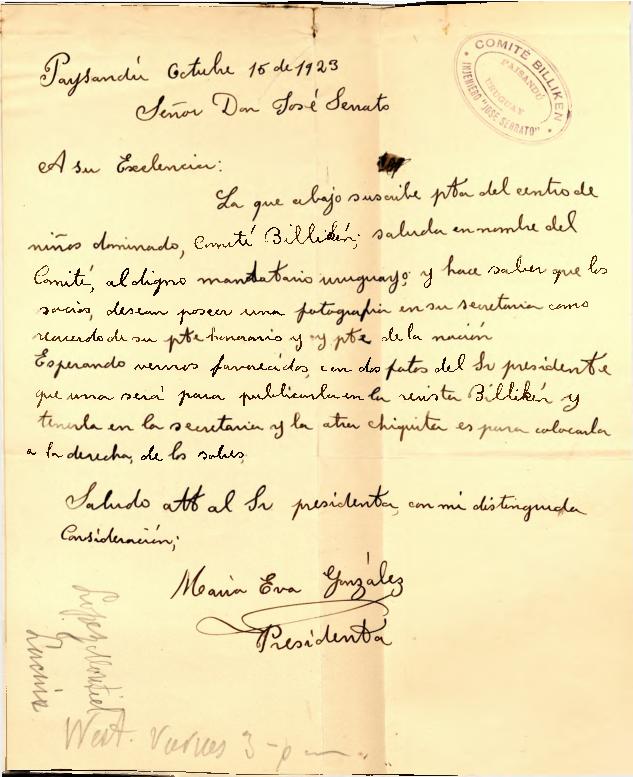 Paysandú Octubre 15 de 1923
COMITÉ BILLIKEN
PAISANDÚ
URUGUAY
INJENIERO "JOSÉ SERRATO"
Señor Don José Serrato
A su Exelencia:
La que abajo suscribe pta del centro de
niños dominado, Comité Billikén; saluda en nombre del
Comité, al digno mandatario uruguayo; y hace saber que los
socios, desean poseer una fotografia en su secretaria como
recuerdo de su pte honorario y pte de la nación
Esperando vernos favorecidos, con dos fotos del Sr presidente
que una será para publicarla en la revista Billikén y
tenerla en la secretaria y la otra chiquita es para colocarla
a la derecha, de los sobres,
Saludo att al Sr presidente, con mi distinguida
Consideración;
Maria Eva González
Presidenta
Lopez Montiel
Viernes 3-p